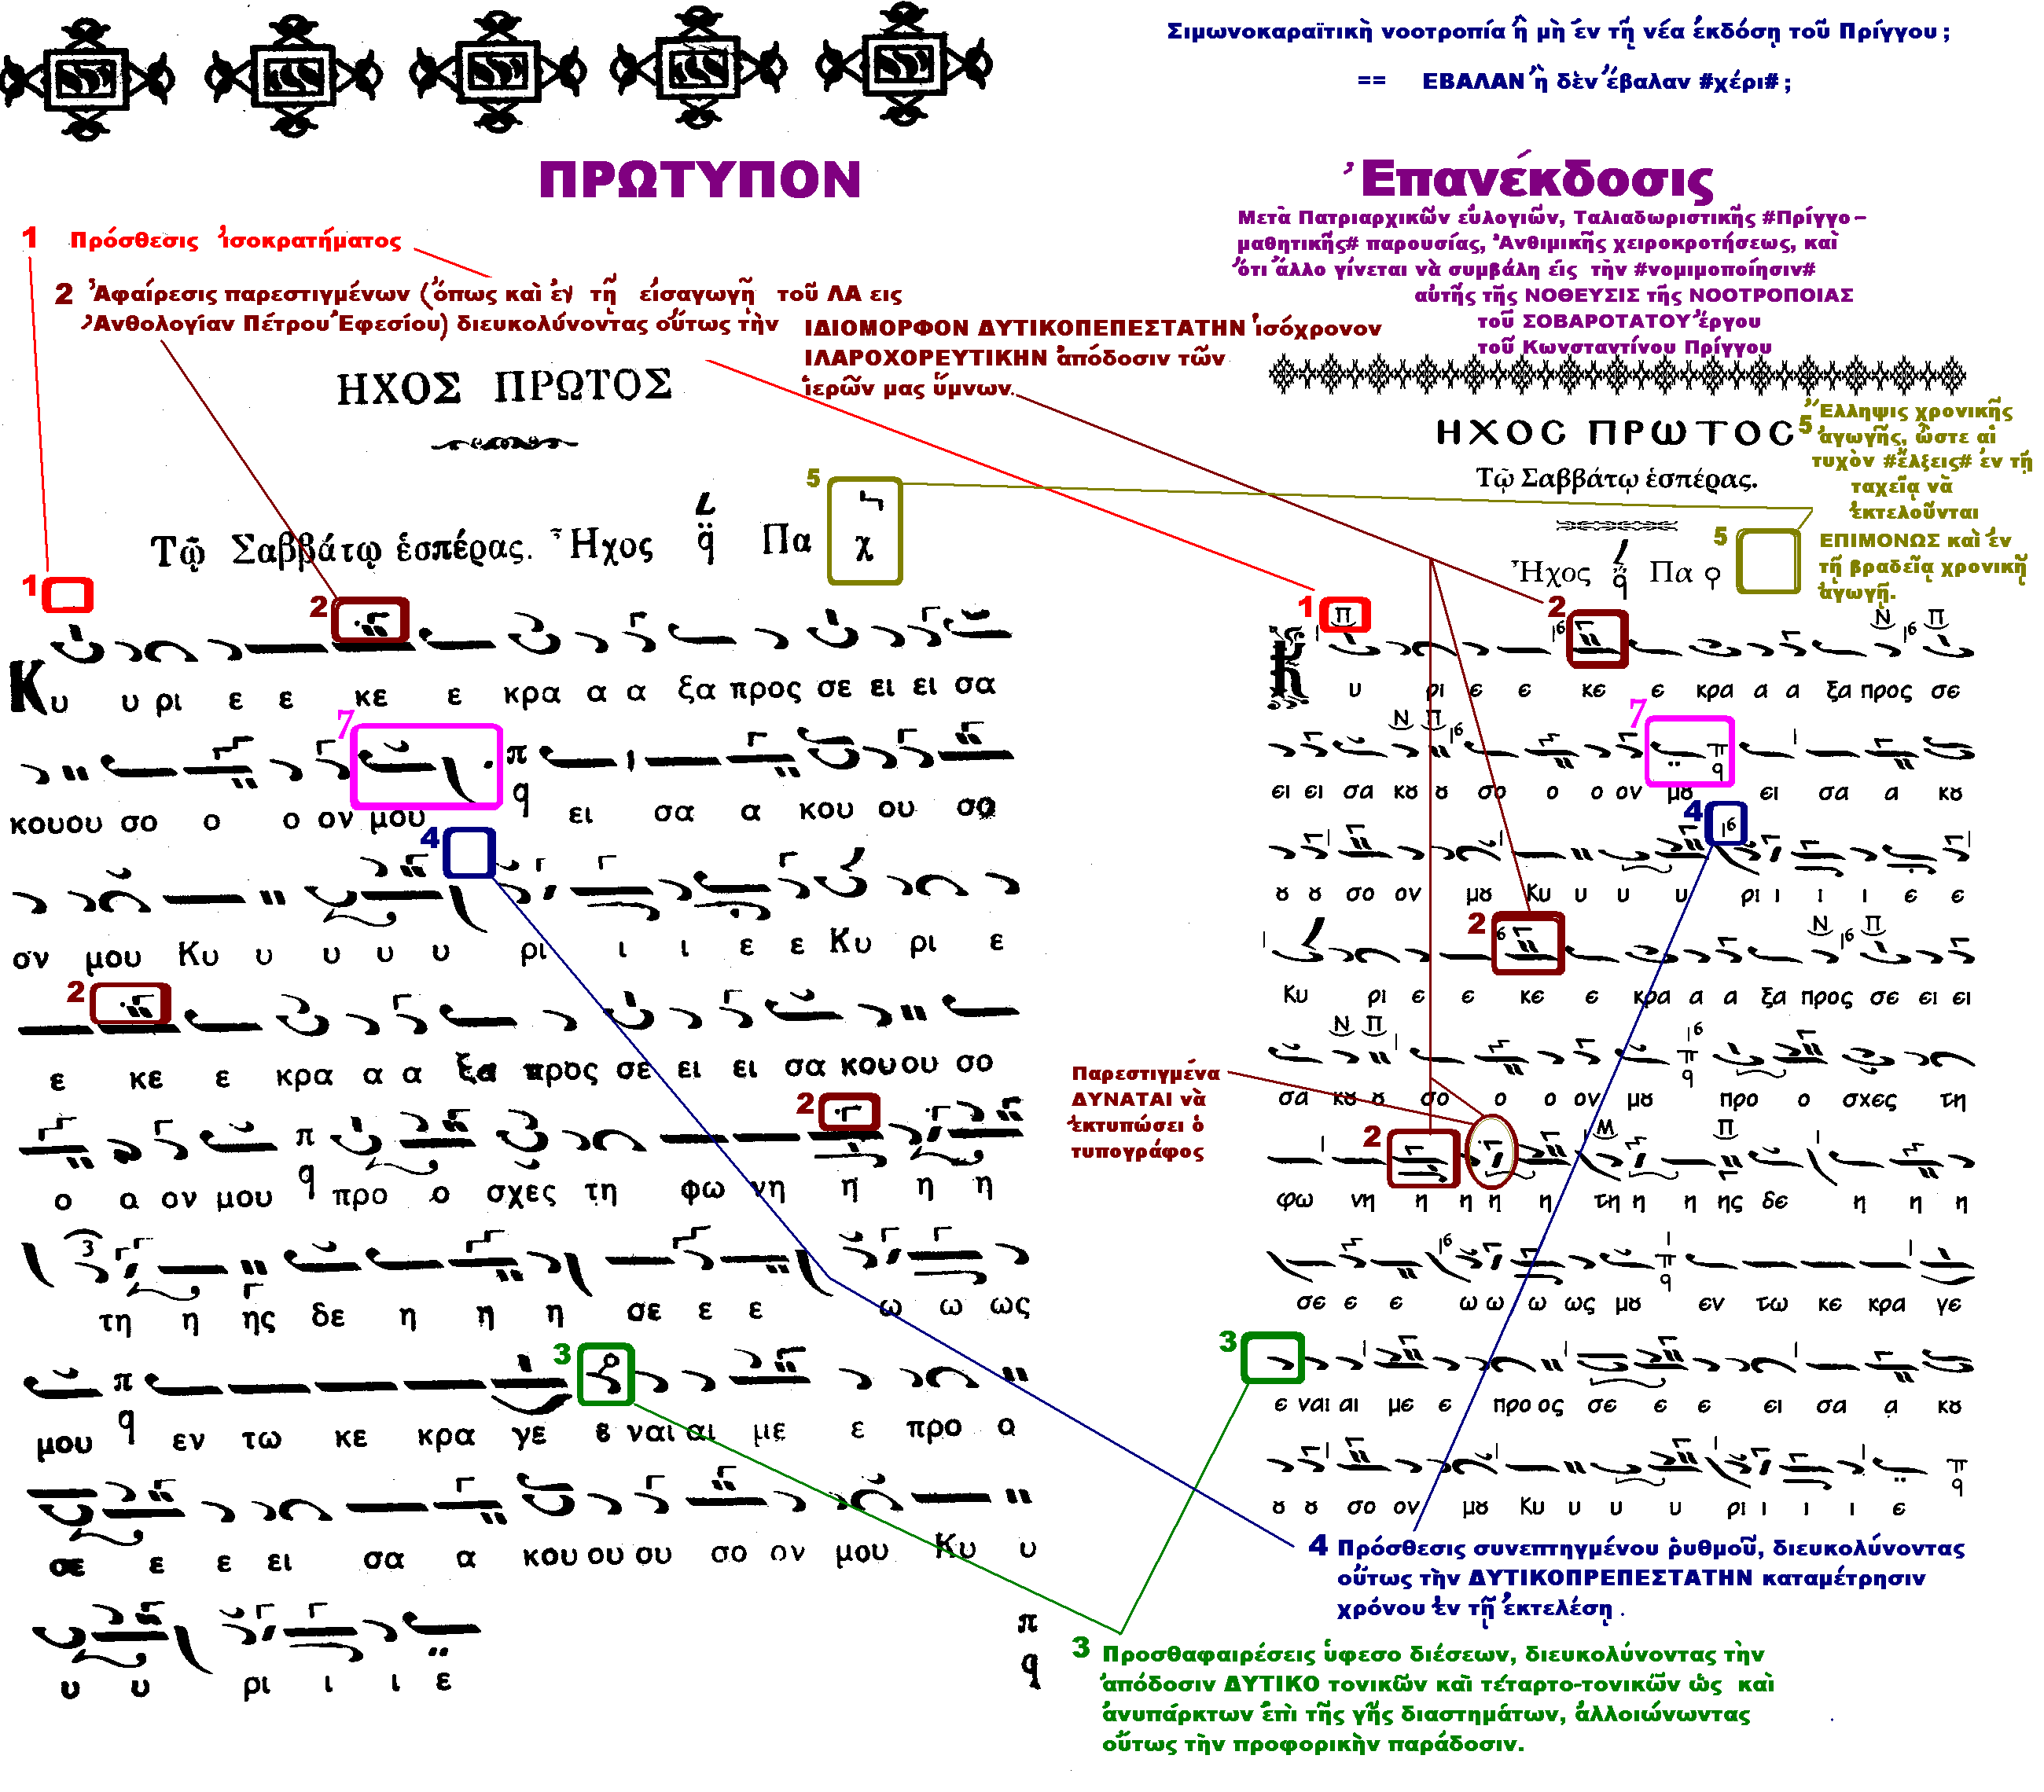 Σιμωνοκαραϊτικὴ νοοτροπία ἢ μὴ ἐν τῇ νέα ἐκδόσῃ τοῦ Πρίγγου ;
== ΕΒΑΛΑΝ ἢ δὲν ἔβαλαν #χέρι# ;
ΠΡΩΤΥΠΟΝ
Ἐπανέκδοσις
Μετὰ Πατριαρχικῶν εὐλογιῶν, Ταλιαδωριστικῆς #Πρίγγο –
μαθητικῆς# παρουσίας, Ἀνθιμικῆς χειροκροτήσεως, καὶ
ὅτι ἄλλο γίνεται νὰ συμβάλη εἰς τὴν #νομιμοποίησιν#
αὐτῆς τῆς ΝΟΘΕΥΣΙΣ τῆς ΝΟΟΤΡΟΠΟΙΑΣ
τοῦ ΣΟΒΑΡΟΤΑΤΟΥ ἔργου
τοῦ Κωνσταντίνου Πρίγγου
1 Πρόσθεσις ἰσοκρατήματος
2 Ἀφαίρεσις παρεστιγμένων (ὅπως καὶ ἐν τῇ εἰσαγωγῇ τοῦ ΛΑ εις
Ἀνθολογίαν Πέτρου Ἐφεσίου) διευκολύνοντας οὕτως τὴν
ΙΔΙΟΜΟΡΦΟΝ ΔΥΤΙΚΟΠΕΠΕΣΤΑΤΗΝ ἰσόχρονον
ΙΛΑΡΟΧΟΡΕΥΤΙΚΗΝ ἀπόδοσιν τῶν
ἱερῶν μας ὕμνων.
ΗΧΟΣ ΠΡΩΤΟΣ
Τῷ Σαββάτῳ ἑσπέρας. Ἦχος q̈ Πα χ
5
1
2
Κυ υ ρι ε ε κε ε κρα α α ξα προς σε ει ει σα
7
κουου σο ο ο ον μου π q ει σα α κου ου σο
4
σν μου Κυ υ υ υ υ ρι ι ι ε ε Κυ ρι ε
2
ε κε ε κρα α α ξα προς σε ει ει σα κουου σο
2
ο α ον μου π q προ ο σχες τη φω νη η η η
3
τη η ης δε η η η σε ε ε ω ω ως
3
μου π q εν τω κε κρα γε ε ναι αι με ε προ ο
σε ε ε ει σα α κου ου ου σο ον μου Κυ υ
υ υ ρι ι ι ε π q
ΗΧΟΣ ΠΡΩΤΟΣ
Τῷ Σαββάτῳ ἑσπέρας.
Ἦχος q̈ Πα
5
5 Ἔλληψις χρονικῆς
ἀγωγῆς, ὥστε αἱ
τυχὸν #ἕλξεις# ἐν τῇ
ταχεῖᾳ νὰ
ἐκτελοῦνται
ΕΠΙΜΟΝΩΣ καὶ ἐν
τῇ βραδεῖᾳ χρονικῇ
ἀγωγῇ.
1 Π 2 6 Ν 6 Π
Κ υ ρι ε ε κε ε κρα α α ξα προς σε
Ν Π 6 7
ει ει σα κȣ ȣ σο ο ο ον μȣ π q ει σα α κȣ
4 6
ȣ ȣ σο ον μȣ Κυ υ υ υ ρι ι ι ι ε ε
2 6 Ν 6 Π
Κυ ρι ε ε κε ε κρα α α ξα προς σε ει ει
Ν Π 6
σα κȣ ȣ σο ο ο ον μȣ π q προ ο σχες τη
2 Μ Π
φω νη η η η η τη η η ης δε η η η
6
σε ε ε ω ω ω ως μȣ π q εν τω κε κρα γε
3
ε ναι αι με ε προ ος σε ε ε ει σα α κȣ
ȣ ȣ σο ον μȣ Κυ υ υ υ ρι ι ι ι ε π q
Παρεστιγμένα
ΔΥΝΑΤΑΙ νὰ
ἐκτυπώσει ὁ
τυπογράφος
4 Πρόσθεσις συνεπτηγμένου ῥυθμοῦ, διευκολύνοντας
οὕτως τὴν ΔΥΤΙΚΟΠΡΕΠΕΣΤΑΤΗΝ καταμέτρησιν
χρόνου ἐν τῇ ἐκτελέσῃ .
3 Προσθαφαιρέσεις ὑφεσο διέσεων, διευκολύνοντας τὴν
ἀπόδοσιν ΔΥΤΙΚΟ τονικῶν καὶ τέταρτο-τονικῶν ὡς καὶ
ἀνυπάρκτων ἐπὶ τῆς γῆς διαστημάτων, ἀλλοιώνωντας
οὕτως τὴν προφορικὴν παράδοσιν.